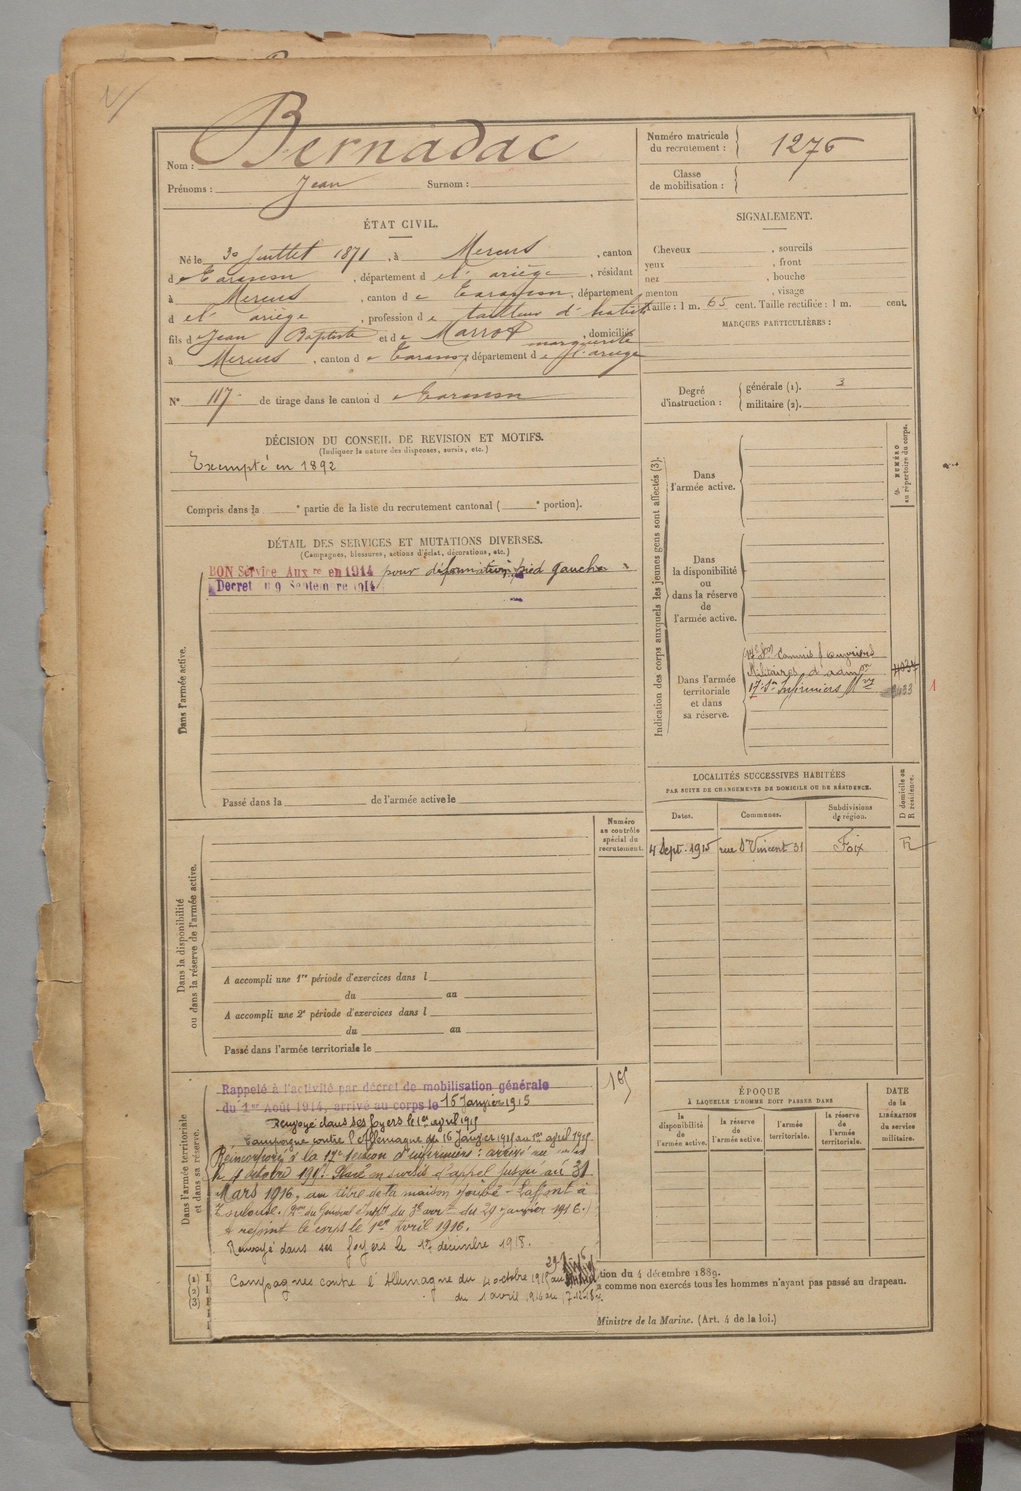 Nom : Bernadac
Prénoms : Jean Surnom :
Numéro matricule du recrutement : 1276
Classe de mobilisation :
ÉTAT CIVIL.
Né le 30 Juillet 1871, à Mercus, canton
de Tarascon, département de l'ariège, résidant
à Mercus, canton de Tarascon, département
de l'ariège, profession de tailleur d'habits
fils de Jean Baptiste et de Marrot marguerite, domiciliés
à Mercus, canton de Tarascon, département de l'ariège
N° 117 de tirage dans le canton de Tarascon
SIGNALEMENT.
Cheveux , sourcils
yeux , front
nez , bouche
menton , visage
Taille : 1 m. 65 cent. Taille rectifiée : 1 m. cent.
MARQUES PARTICULIÈRES :
Degré d'instruction : générale (1). 3
militaire (2).
DÉCISION DU CONSEIL DE REVISION ET MOTIFS.
(Indiquer la nature des dispenses, sursis, etc.)
Exempté en 1892
Compris dans la e partie de la liste du recrutement cantonal ( e portion).
DÉTAIL DES SERVICES ET MUTATIONS DIVERSES.
(Campagnes, blessures, actions d'éclat, décorations, etc.)
BON Service Aux re en 1914 pour déformation pied gauche
Décret du 9 Septembre 1914
Dans l'armée active.
Passé dans la de l'armée active le
Indication des corps auxquels les jeunes gens sont affectés (3).
NUMÉRO au répertoire du corps.
Dans l'armée active.
Dans la disponibilité ou dans la réserve de l'armée active.
Dans l'armée territoriale et dans sa réserve.
Militaires d'adm on
17e S on Infirmiers
LOCALITÉS SUCCESSIVES HABITÉES
PAR SUITE DE CHANGEMENTS DE DOMICILE OU DE RÉSIDENCE.
Dates. Communes. Subdivisions de région. D domicile ou R résidence.
4 Sept. 1915 rue St Vincent 31 Foix R
Numéro au contrôle spécial du recrutement.
Dans la disponibilité ou dans la réserve de l'armée active.
A accompli une 1re période d'exercices dans l
du au
A accompli une 2e période d'exercices dans l
du au
Passé dans l'armée territoriale le
Dans l'armée territoriale et dans sa réserve.
Rappelé à l'activité par décret de mobilisation générale
du 1er Août 1914, arrivé au corps le 16 Janvier 1915
Renvoyé dans ses foyers le 1er avril 1915
Campagne contre l'Allemagne du 16 Janvier 1915 au 1er avril 1915
à la 17e section d'infirmiers : arrivé au corps
le 4 octobre 1915. Placé en sursis d'appel jusqu'au 31
Mars 1916, au titre de la maison
Toulouse. du 29 Janvier 1916.
rejoint le corps le 1er Avril 1916.
Renvoyé dans ses foyers le 17 décembre 1918.
Campagnes contre l'Allemagne du 4 octobre 1915 au
du 1 avril 1916 au 17-12-18
165
ÉPOQUE
À LAQUELLE L'HOMME DOIT PASSER DANS
la disponibilité de l'armée active. la réserve de l'armée active. l'armée territoriale. la réserve de l'armée territoriale.
DATE de la LIBÉRATION du service militaire.
(1)
(2)
(3)
tion du 4 décembre 1889.
a comme non exercés tous les hommes n'ayant pas passé au drapeau.
Ministre de la Marine. (Art. 4 de la loi.)